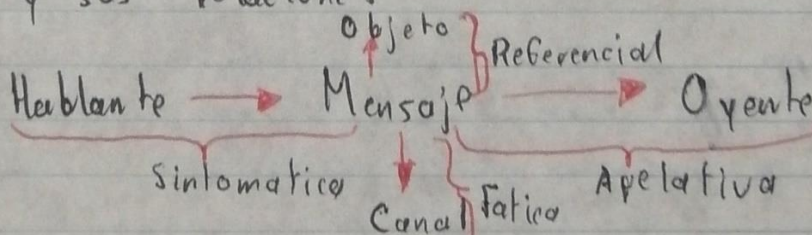 Objeto
Referencial
Hablante Mensaje Oyente
Sintomatica Apelativa
Canal Fatica